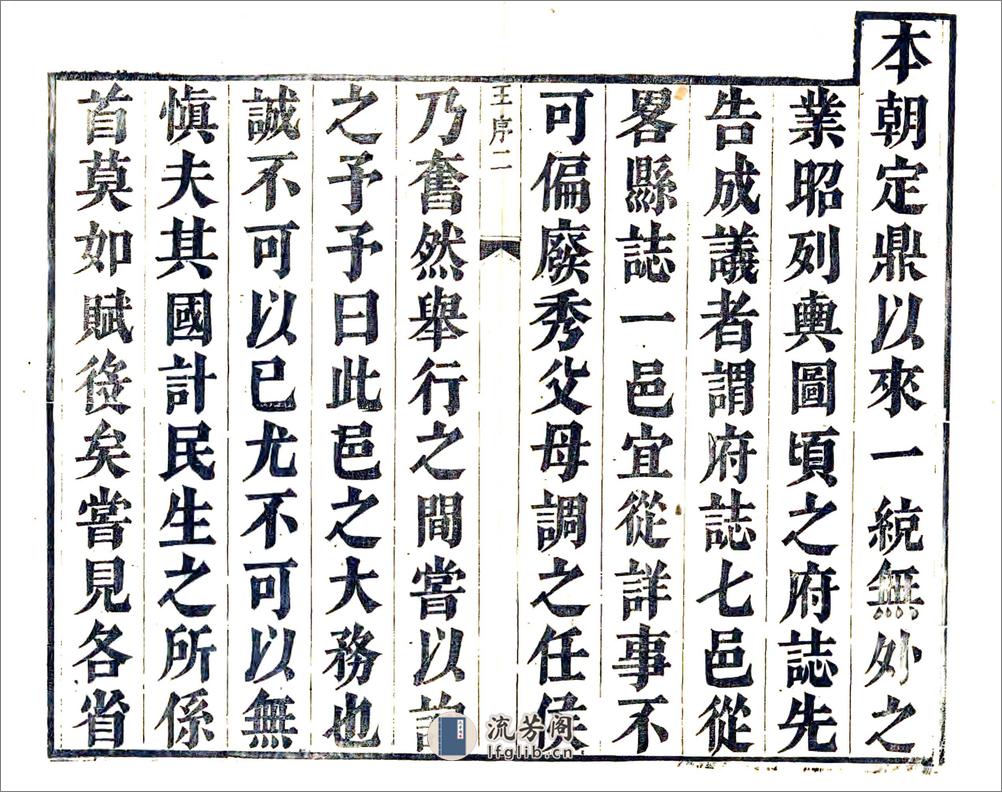 本朝定鼎以來一統無外之
業昭列輿圖頃之府誌先
告成議者謂府誌七邑從
畧縣誌一邑宜從詳事不
可偏廢秀父母調之任侯
王序二
乃奮然舉行之間嘗以詢
之予予曰此邑之大務也
誠不可以已尤不可以無
慎夫其國計民生之所係
首莫如賦役矣嘗見各省
流芳阁
lfglib.cn